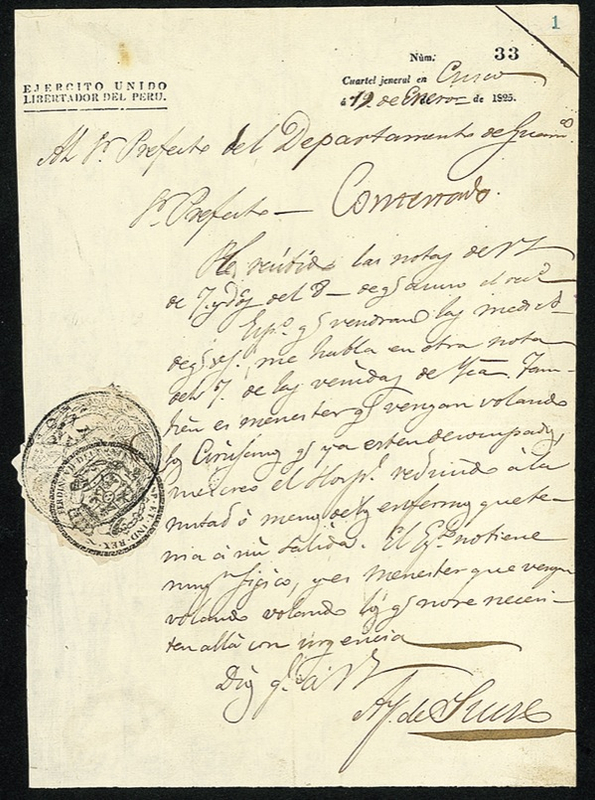 1
Núm. 33
EJERCITO UNIDO
LIBERTADOR DEL PERU.
Cuartel jeneral en Cusco
á 19 de Enero de 1825.
Al Sr. Prefecto del Departamento de
Sr. Prefecto — Contestado.
He recibido las notas de VS
de 7. y dos del 8 —
vendran las
me habla en otra nota
del 7. de las venidas de Yca. Tam-
bien es menester qs. vengan volando
los Cirujanos qs. ya esten desocupados
el reducido á la
mitad ó menos de los enfermos que te-
nia á mi salida. El no tiene
y es menester que vengan
volando volando los qs. no se necesi-
ten allá con urgencia
Dios gue. á VS
A. J. de Sucre
FERDIN. VII DEI GRATIA
HISP. ET IND. REX